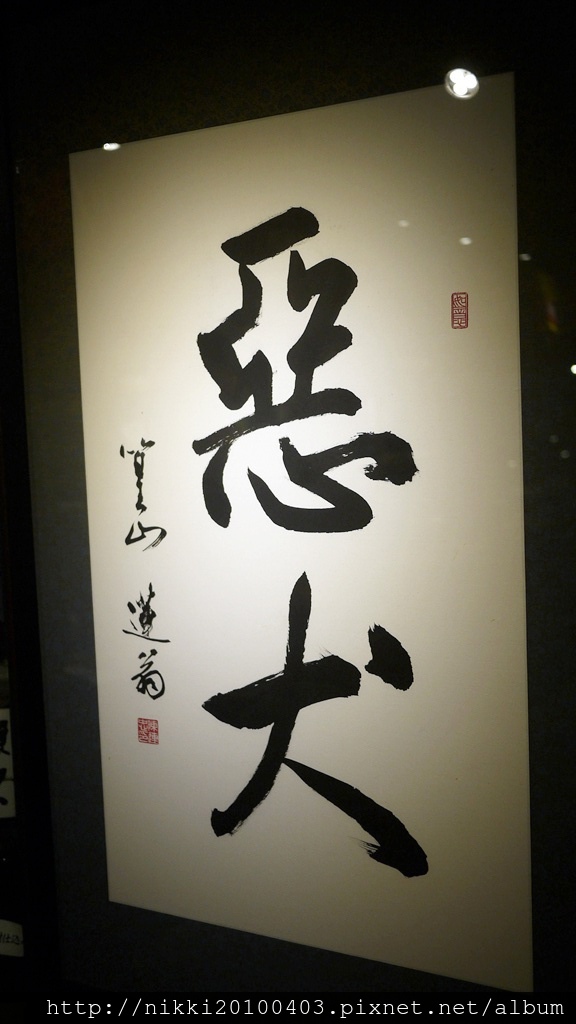 惡犬
笠山 蓮翁
http://nikki20100403.pixnet.net/album